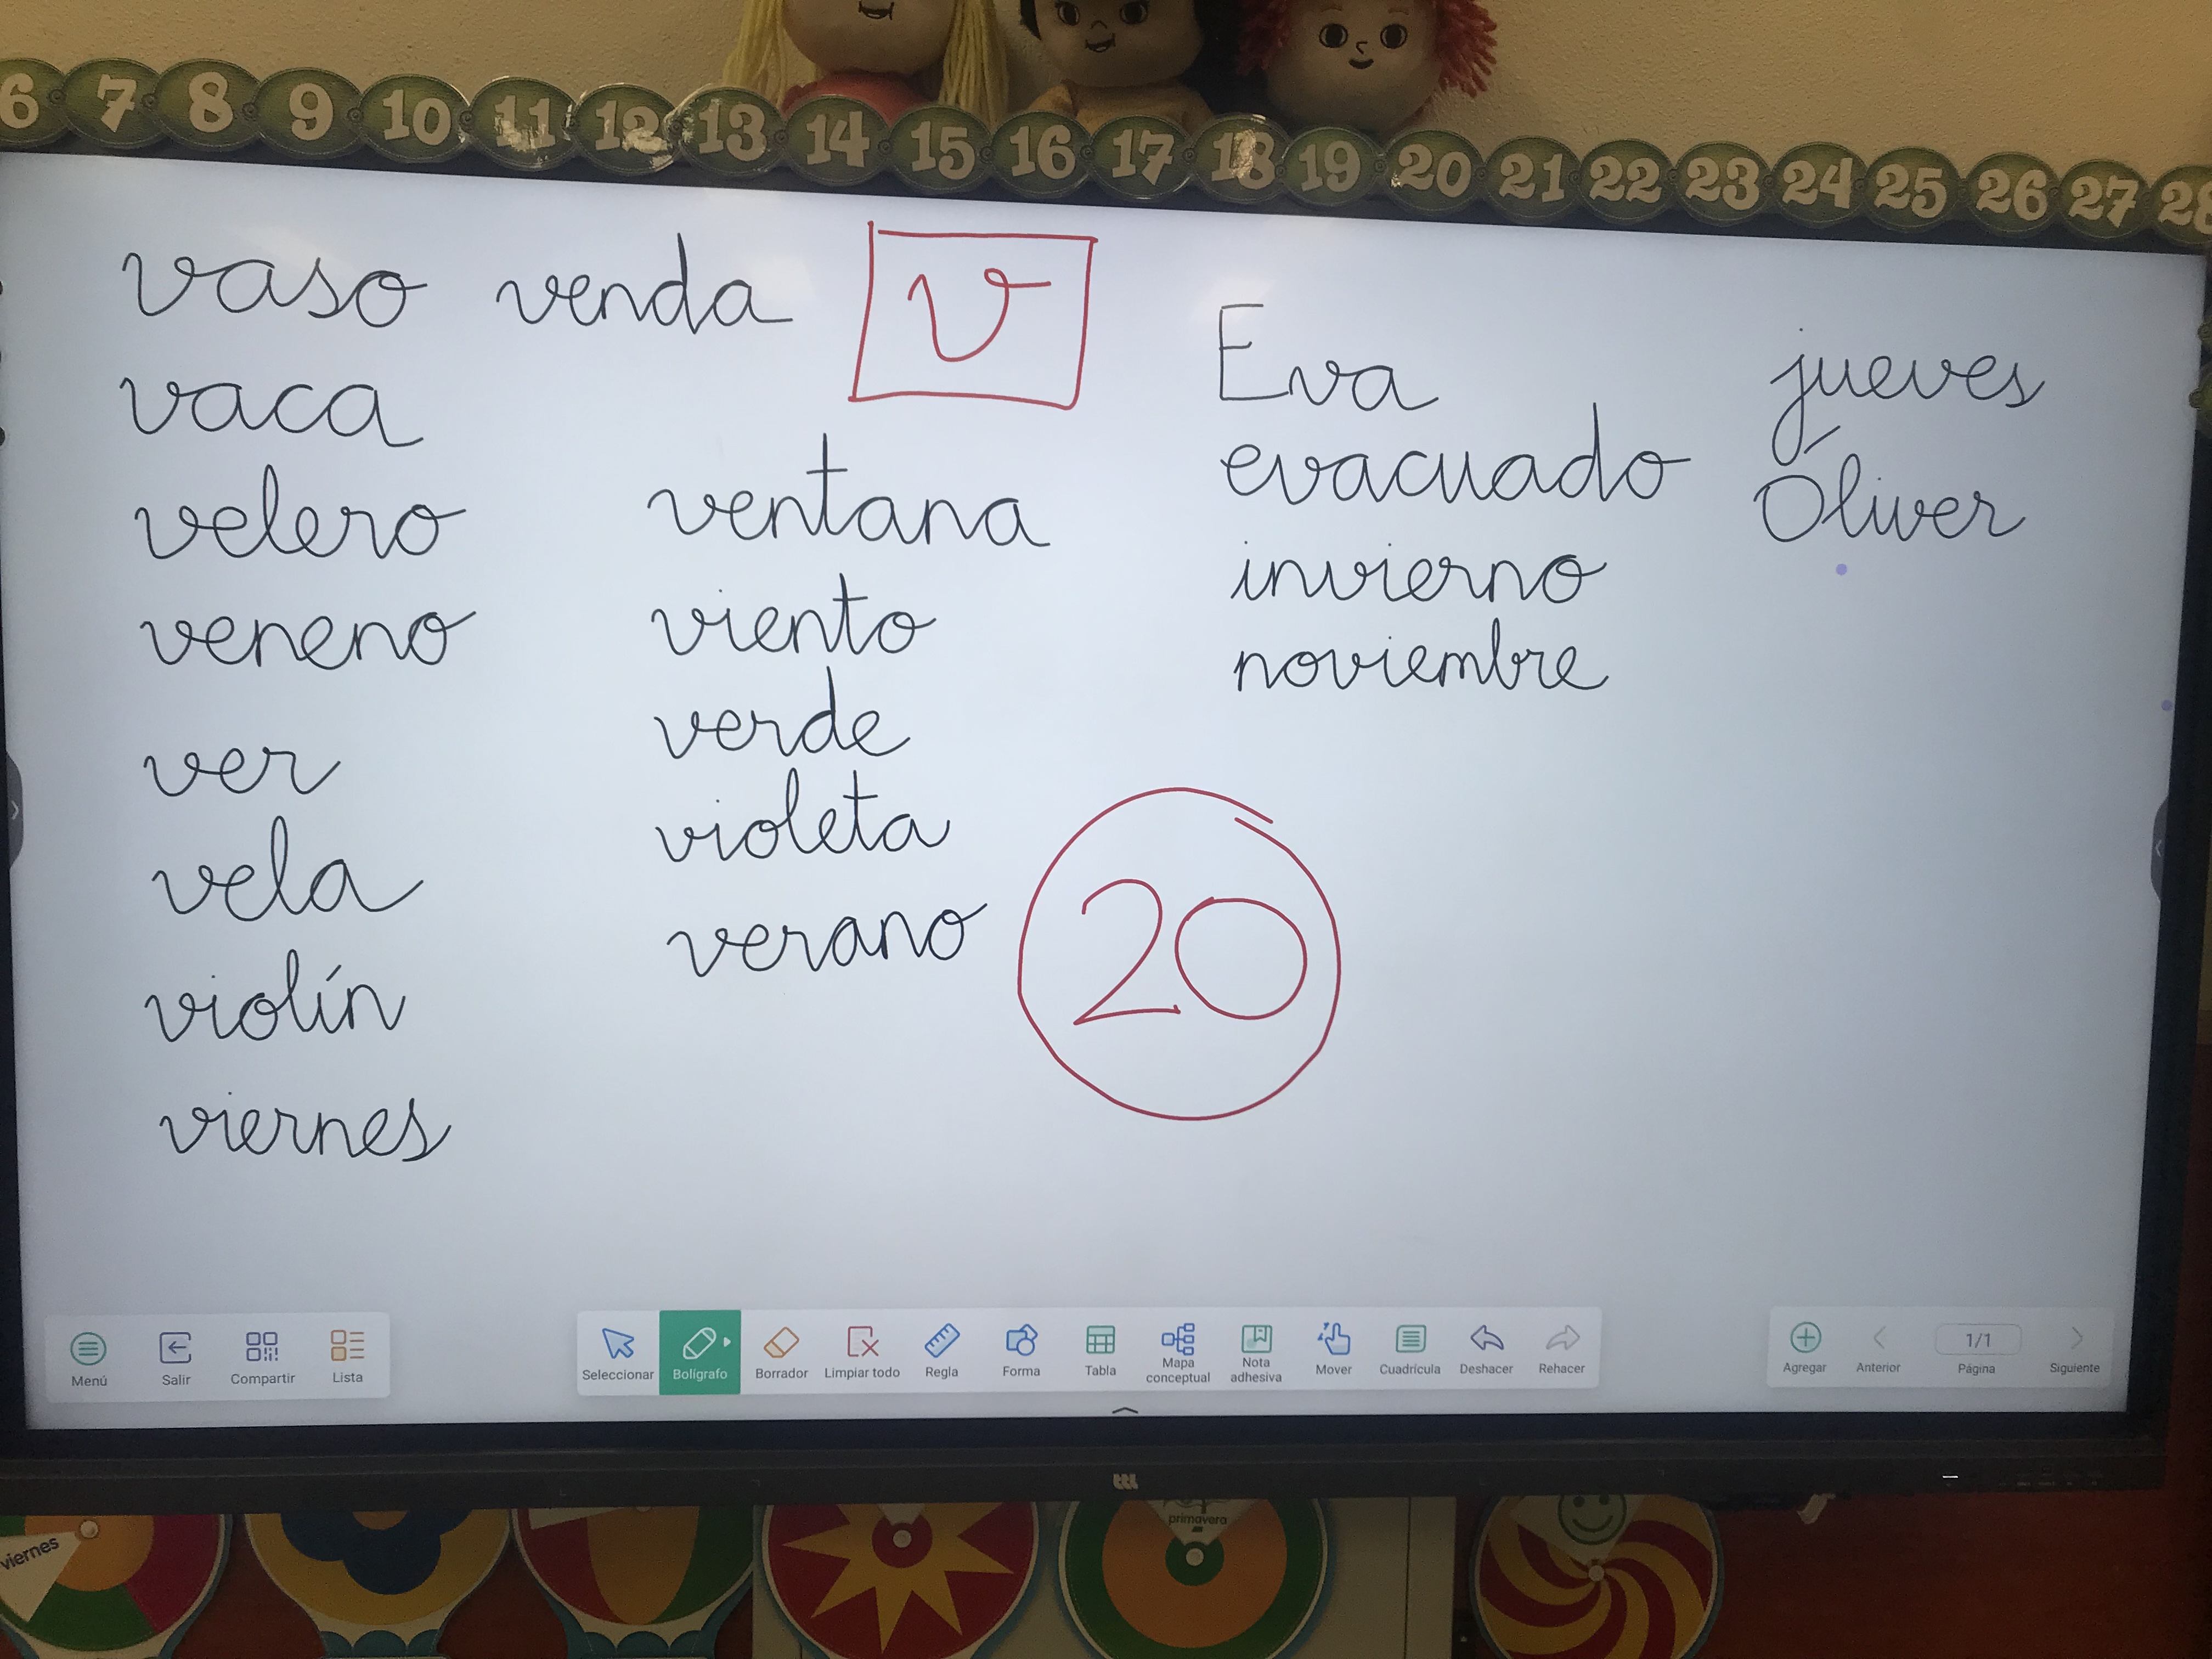 6 7 8 9 10 11 12 13 14 15 16 17 18 19 20 21 22 23 24 25 26 27 28
vaso venda v
vaca
velero
veneno
ver
vela
violín
viernes
ventana
viento
verde
violeta
verano
20
Eva
evacuado
invierno
noviembre
jueves
Óliver
Menú Salir Compartir Lista
Seleccionar Bolígrafo Borrador Limpiar todo Regla Forma Tabla Mapa conceptual Nota adhesiva Mover Cuadrícula Deshacer Rehacer
Agregar Anterior 1/1 Página Siguiente
viernes
primavera